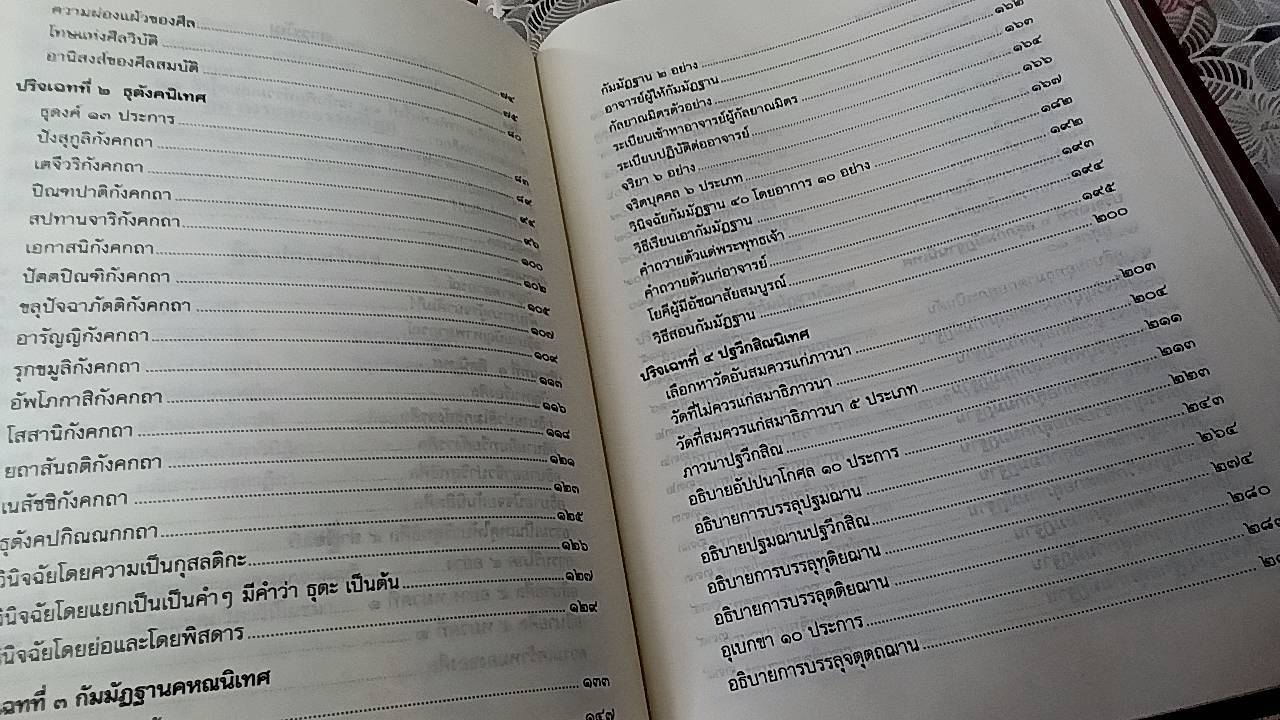 ความผ่องแผ้วของศีล
โทษแห่งศีลวิบัติ
อานิสงส์ของศีลสมบัติ ๗๔
ปริจเฉทที่ ๒ ธุตังคนิเทศ ๗๕
ธุดงค์ ๑๓ ประการ ๘๐
ปังสุกูลิกังคกถา
เตจีวริกังคกถา ๘๓
ปิณฑปาติกังคกถา ๘๙
สปทานจาริกังคกถา ๙๔
เอกาสนิกังคกถา ๙๖
ปัตตปิณฑิกังคกถา ๑๐๐
ขลุปัจฉาภัตติกังคกถา ๑๐๒
อารัญญิกังคกถา ๑๐๕
รุกขมูลิกังคกถา ๑๐๗
อัพโภกาสิกังคกถา ๑๐๙
โสสานิกังคกถา ๑๑๓
ยถาสันถติกังคกถา ๑๑๖
เนสัชชิกังคกถา ๑๑๘
ธุตังคปกิณณกกถา ๑๒๑
วินิจฉัยโดยความเป็นกุสลติกะ ๑๒๓
วินิจฉัยโดยแยกเป็นเป็นคำๆ มีคำว่า ธุตะ เป็นต้น ๑๒๕
วินิจฉัยโดยย่อและโดยพิสดาร ๑๒๖
๑๒๗
๑๒๙
เฉทที่ ๓ กัมมัฏฐานคหณนิเทศ
๑๓๓
๑๔๗
กัมมัฏฐาน ๒ อย่าง ๑๖๒
อาจารย์ผู้ให้กัมมัฏฐาน ๑๖๓
กัลยาณมิตรตัวอย่าง ๑๖๔
ระเบียบเข้าหาอาจารย์ผู้กัลยาณมิตร ๑๖๖
ระเบียบปฏิบัติต่ออาจารย์ ๑๖๗
จริยา ๖ อย่าง ๑๘๒
จริตบุคคล ๖ ประเภท ๑๙๒
วินิจฉัยกัมมัฏฐาน ๔๐ โดยอาการ ๑๐ อย่าง ๑๙๓
วิธีเรียนเอากัมมัฏฐาน ๑๙๔
คำถวายตัวแด่พระพุทธเจ้า ๑๙๕
คำถวายตัวแก่อาจารย์ ๒๐๐
โยคีผู้มีอัชฌาสัยสมบูรณ์
วิธีสอนกัมมัฏฐาน ๒๐๓
ปริจเฉทที่ ๔ ปฐวีกสิณนิเทศ
เลือกหาวัดอันสมควรแก่ภาวนา ๒๐๔
วัดที่ไม่ควรแก่สมาธิภาวนา ๒๑๑
วัดที่สมควรแก่สมาธิภาวนา ๕ ประเภท ๒๑๓
ภาวนาปฐวีกสิณ ๒๒๓
อธิบายอัปปนาโกศล ๑๐ ประการ ๒๔๓
อธิบายการบรรลุปฐมฌาน ๒๖๔
อธิบายปฐมฌานปฐวีกสิณ ๒๗๔
อธิบายการบรรลุทุติยฌาน ๒๘๐
อธิบายการบรรลุตติยฌาน
อุเบกขา ๑๐ ประการ
อธิบายการบรรลุจตุตถฌาน